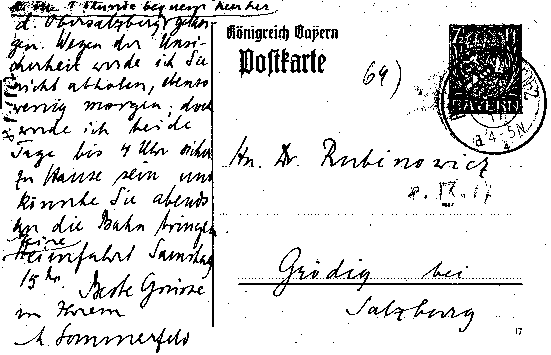 1 Stunde bequemer hierher
d. Obersalzberg gelan-
gen. Wegen der Unsi-
cherheit werde ich Sie
nicht abholen, ebenso
wenig morgen; doch
werde ich beide
Tage bis 4 Uhr sicher
zu Hause sein und
könnte Sie abends
an die Bahn bringen
Meine
Heimfahrt Samstag
15
Beste Grüsse
von Ihrem
A. Sommerfeld
Königreich Bayern
Postkarte
7
BAYERN
17
4-5N
69)
Hn. Dr. Rubinowicz
8. IX. 17
Grödig bei
Salzburg
17